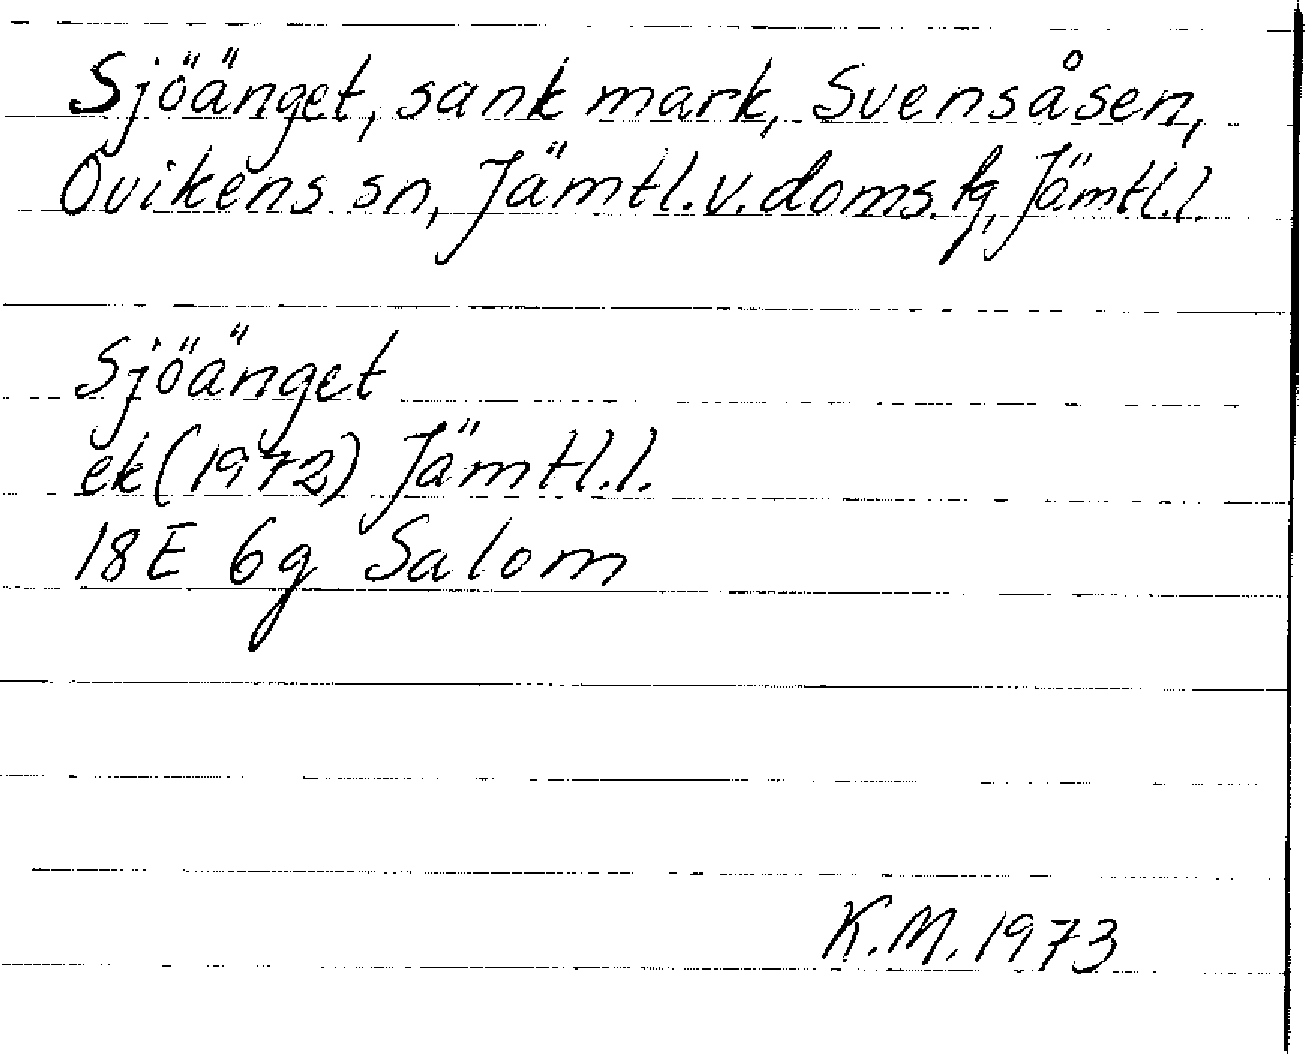 Sjöänget, sank mark, Svensåsen,
Ovikens sn, Jämtl.v.doms.fg, Jämtl.l.
Sjöänget
ek (1972) Jämtl.l.
18E 6g Salom
K.M. 1973